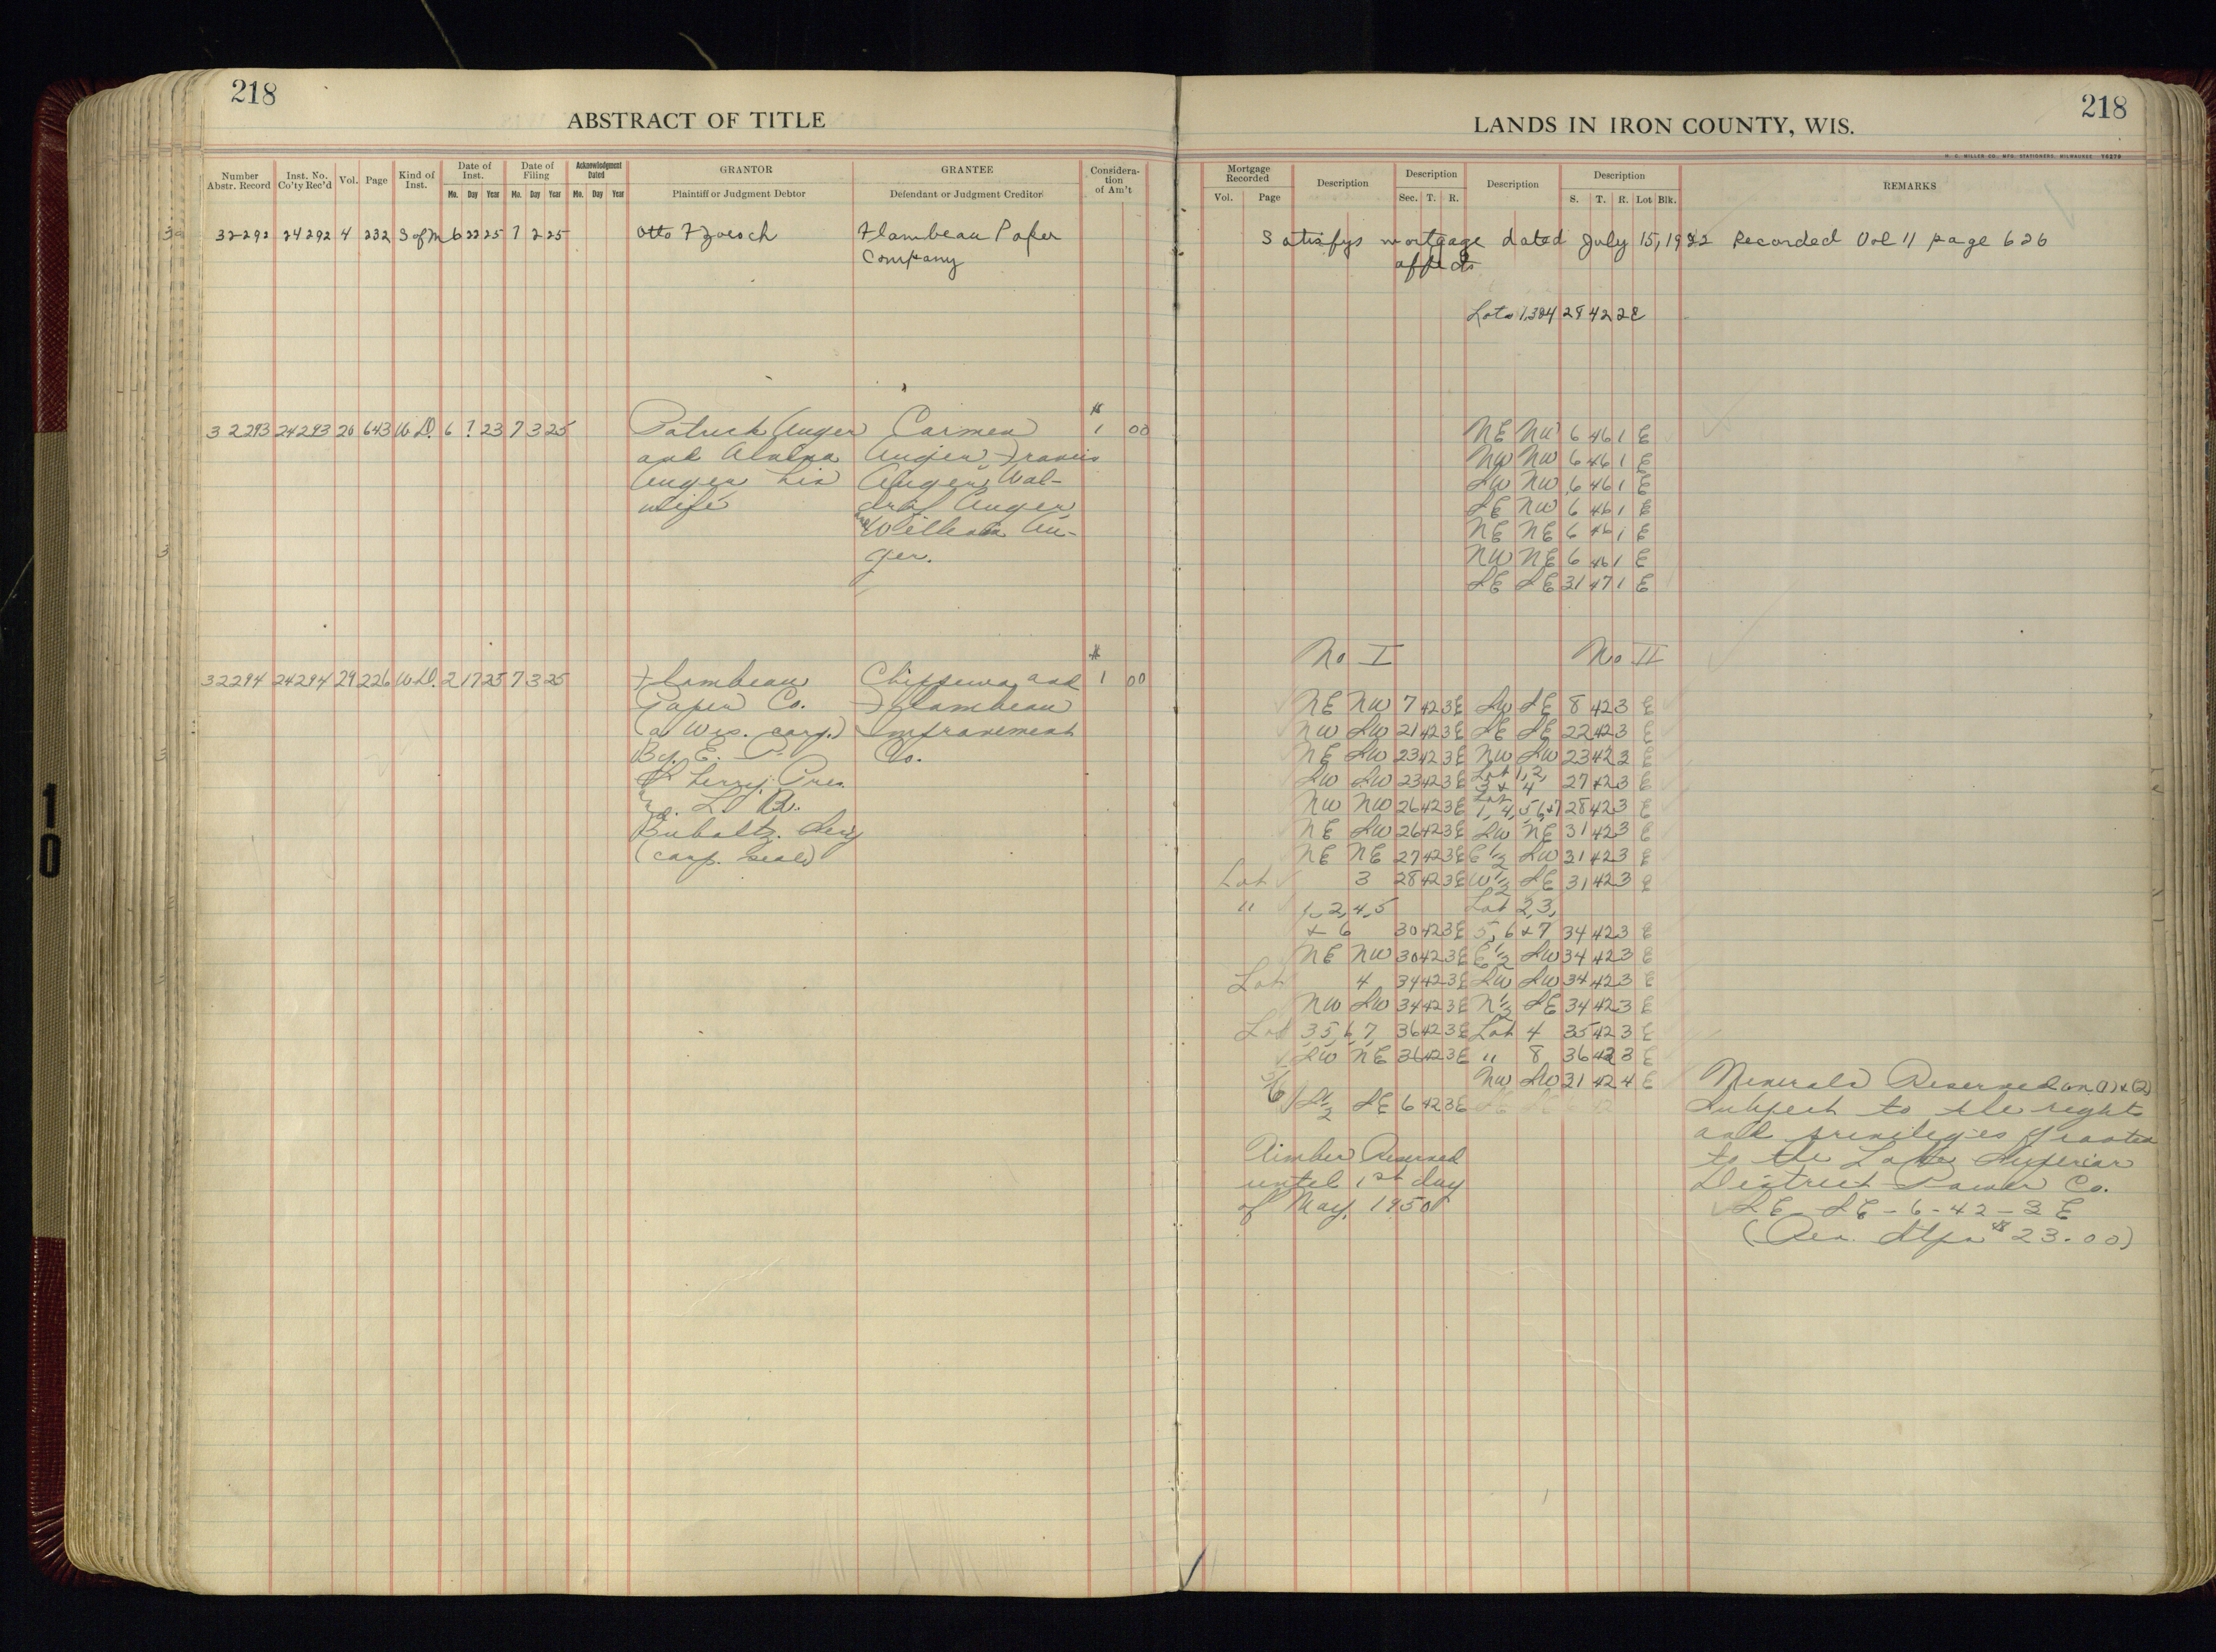 218
ABSTRACT OF TITLE
Number Abstr. Record
Inst. No. Co'ty Rec'd
Vol.
Page
Kind of Inst.
Date of Inst.
Mo. Day Year
Date of Filing
Mo. Day Year
Acknowledgment Dated
Mo. Day Year
GRANTOR
Plaintiff or Judgment Debtor
GRANTEE
Defendant or Judgment Creditor
Consideration of Am't
32292 24292 4 232 S of M 6 22 25 7 2 25 Otto Zoesch Flambeau Paper
Company
32293 24293 20 643 W.D. 6 ? 23 7 3 25 Patrick Auger Carmen $ 1 00
and Auger Francis
Auger his Auger, Wal-
wife Auger
and William Au-
ger.
32294 24294 29 226 W.D. 2 17 25 7 3 25 Flambeau Chippewa and $ 1 00
Paper Co. Flambeau
(a Wis. corp.) Improvement
By E. P. Co.
Sherry, Pres.
and L. R.
Buholtz. Secy
(corp. seal)
218
LANDS IN IRON COUNTY, WIS.
H. C. MILLER CO., MFG. STATIONERS, MILWAUKEE
Mortgage Recorded
Vol. Page
Description
Description
Sec. T. R.
Description
Description
S. T. R. Lot Blk.
REMARKS
Satisfys mortgage dated July 15, 1922 Recorded Vol 11 page 626
affects
Lots 1,3&4 29 42 2E
NE NW 6 46 1 E
NW NW 6 46 1 E
SW NW 6 46 1 E
SE NW 6 46 1 E
NE NE 6 46 1 E
NW NE 6 46 1 E
SE SE 31 47 1 E
No I No II
NE NW 7 42 3E SW SE 8 42 3 E
NW SW 21 42 3E SE SE 22 42 3 E
NE SW 23 42 3E NW SW 23 42 3 E
SW SW 23 42 3E Lot 1, 2, 3 & 4 27 42 3 E
NW NW 26 42 3E Lot 1, 4, 5, 6, &7 28 42 3 E
NE SW 26 42 3E SW NE 31 42 3 E
NE NE 27 42 3E E½ SW 31 42 3 E
Lot 3 28 42 3E W½ SE 31 42 3 E
" 1, 2, 4, 5 Lot 2, 3,
& 6 30 42 3E 5, 6 & 7 34 42 3 E
NE NW 30 42 3E E½ SW 34 42 3 E
Lot 4 34 42 3E SW SW 34 42 3 E
NW SW 34 42 3E N½ SE 34 42 3 E
Lot 3, 5, 6, 7, 36 42 3E Lot 4 35 42 3 E
SW NE 36 42 3E " 8 36 42 3 E
NW SW 31 42 4 E
S½ SE 6 42 3E
Timber Reserved
until 1st day
of May, 1950
Minerals Reserved on (1) & (2)
Subject to the rights
and privileges granted
to the Lake Superior
District Power Co.
SE - SE - 6 - 42 - 3 E
(Rev. Stps $23.00)